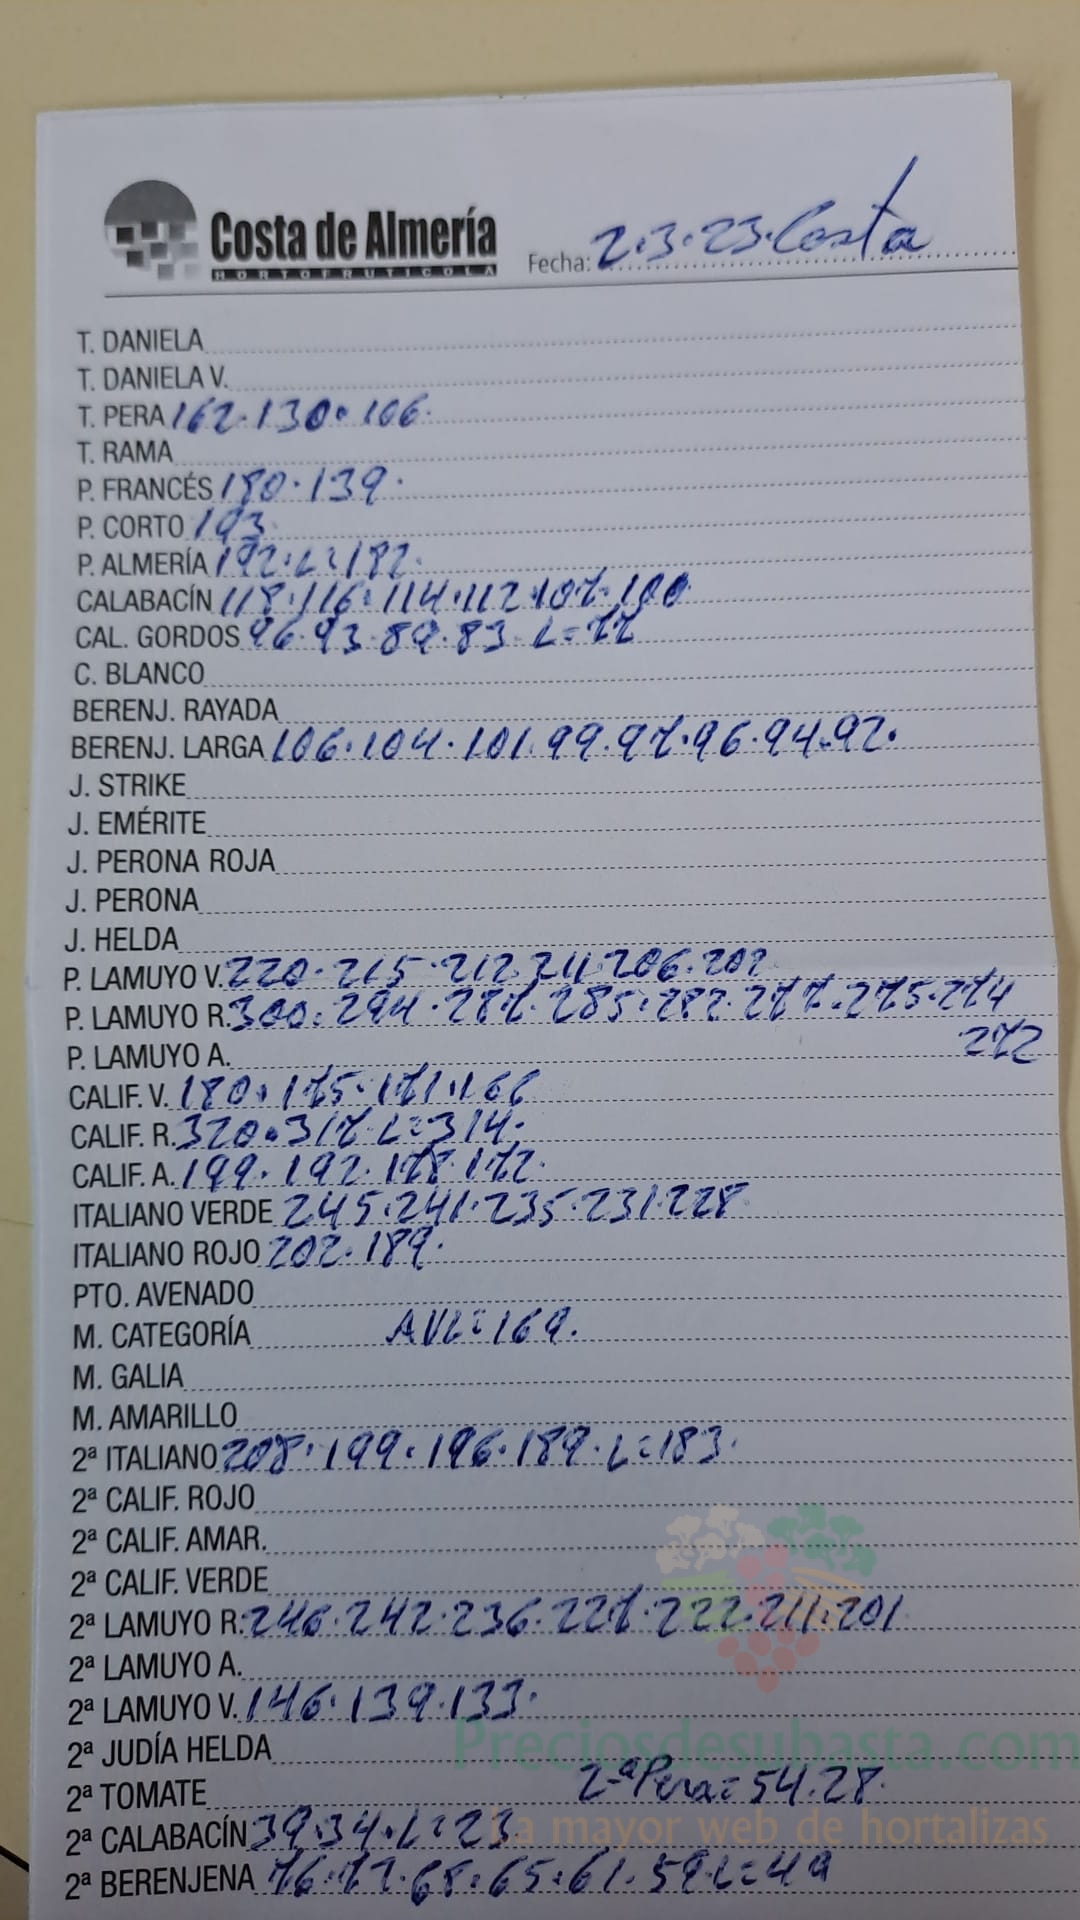 Costa de Almería
HORTOFRUTICOLA
Fecha: 2.3.23. Costa
T. DANIELA
T. DANIELA V.
T. PERA 162.130.106.
T. RAMA
P. FRANCÉS 180.139.
P. CORTO 193
P. ALMERÍA 192.L=182.
CALABACÍN 118.116.114.112.107.100
CAL. GORDOS 96.93.89.83 L=77
C. BLANCO
BERENJ. RAYADA
BERENJ. LARGA 106.104.101.99.97.96.94.92.
J. STRIKE
J. EMÉRITE
J. PERONA ROJA
J. PERONA
J. HELDA
P. LAMUYO V. 220.215.212.211.206.202
P. LAMUYO R. 300.294.287.285.282.277.275.274
272
P. LAMUYO A.
CALIF. V. 180.175.171.166
CALIF. R. 320.317.L=314.
CALIF. A. 199.192.178.172.
ITALIANO VERDE 245.241.235.231.228
ITALIANO ROJO 202.189.
PTO. AVENADO
M. CATEGORÍA AVL=169.
M. GALIA
M. AMARILLO
2ª ITALIANO 208.199.196.189.L=183.
2ª CALIF. ROJO
2ª CALIF. AMAR.
2ª CALIF. VERDE
2ª LAMUYO R. 246.242.236.227.222.211.201
2ª LAMUYO A.
2ª LAMUYO V. 146.139.133.
Preciosdesubasta.com
2ª JUDÍA HELDA
2ª TOMATE 2ª Pera=54.28.
2ª CALABACÍN 39.34.L=23
La mayor web de hortalizas
2ª BERENJENA 76.72.68.65.61.59.L=49